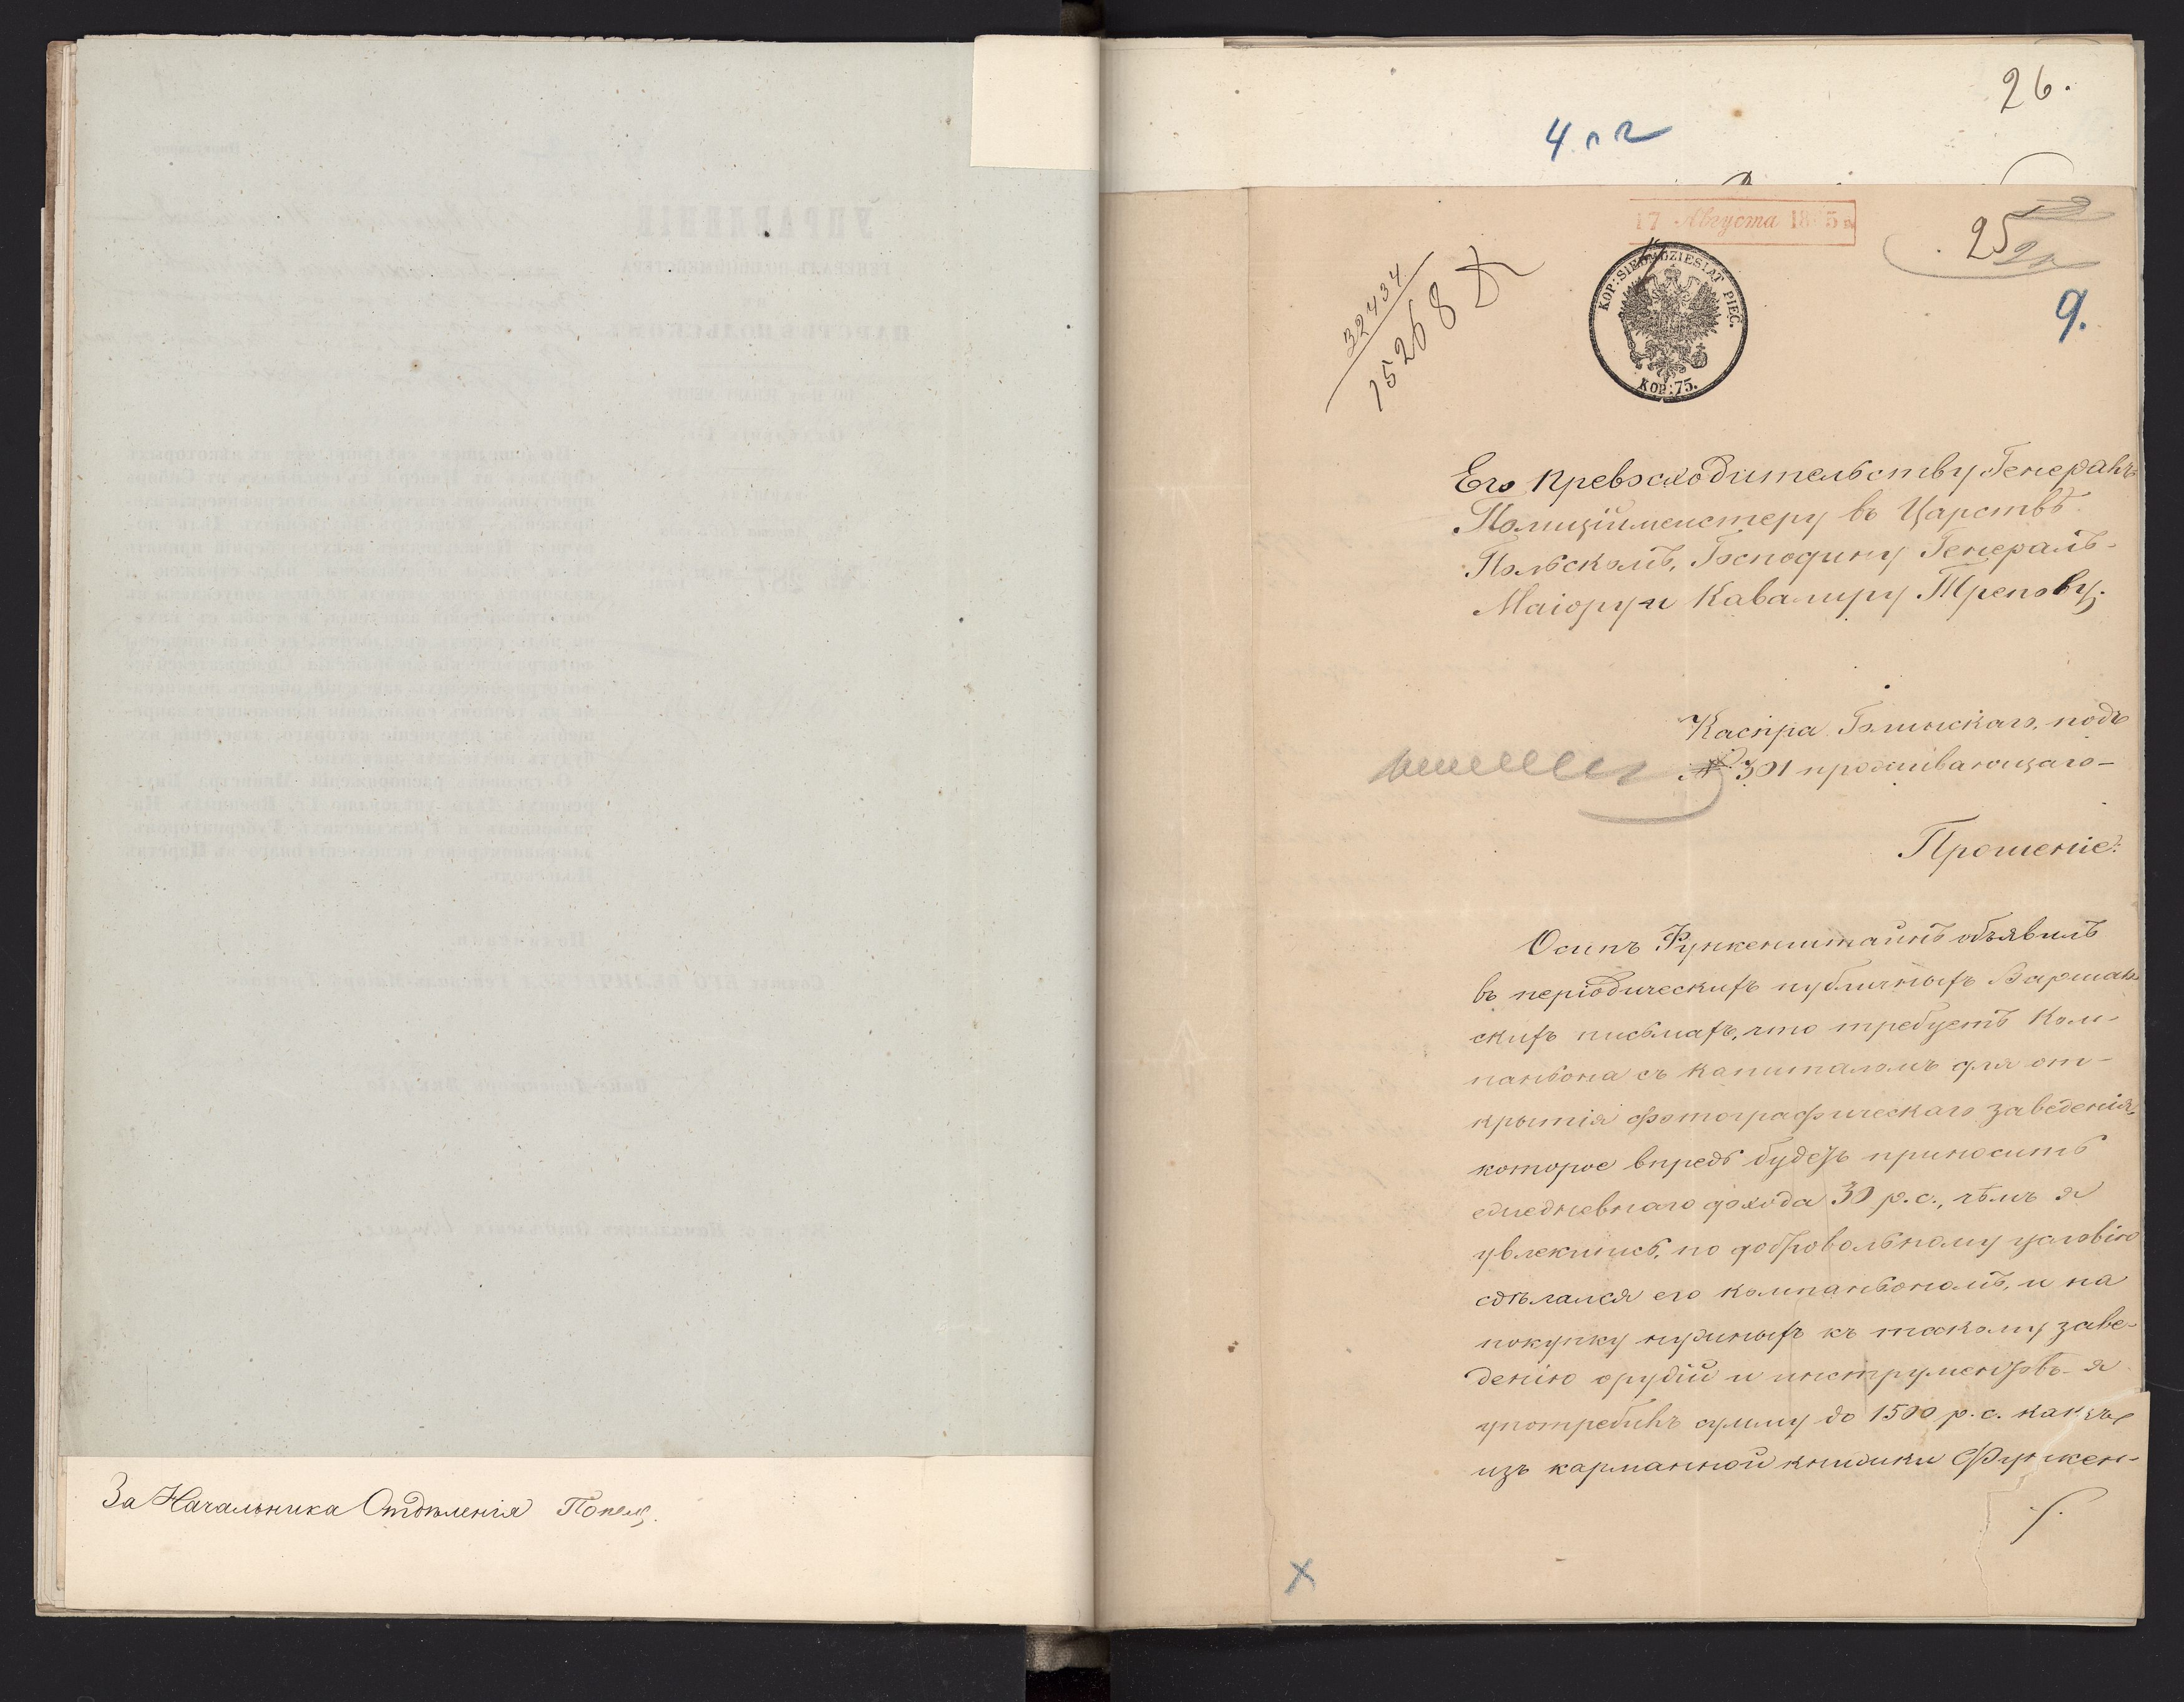 За Начальника Отдѣленія Попель
26.
4 п 2
17 Августа 1865 г.
25
9.
32434
15268
KOP: SIEDMDZIESIAT PIĘĆ.
KOP: 75.
Его Превосходительству Генералъ
Полиціймейстеру въ Царствѣ
Польскомъ, Господину Генералъ-
Маіору и Кавалиру Трепову.
Каспра Глинскаго, подъ
№ 301 проживающаго-
Прошеніе:
Осипъ Функенштайнъ объявилъ
въ періодическихъ публичныхъ Варшав-
скихъ письмахъ, что требуетъ Ком-
паніона съ капиталомъ для от-
крытія фотографическаго заведенія,
которое впредь будетъ приносить
ежедневнаго дохода 30 р. с., чѣмъ я
увлекшись, по добровольному условію
сдѣлался его компаньономъ, и на
покупку нужныхъ къ такому заве-
денію орудій и инструментовъ я
употребилъ сумму до 1500 р. с. какъ
изъ карманной книжки Функен-